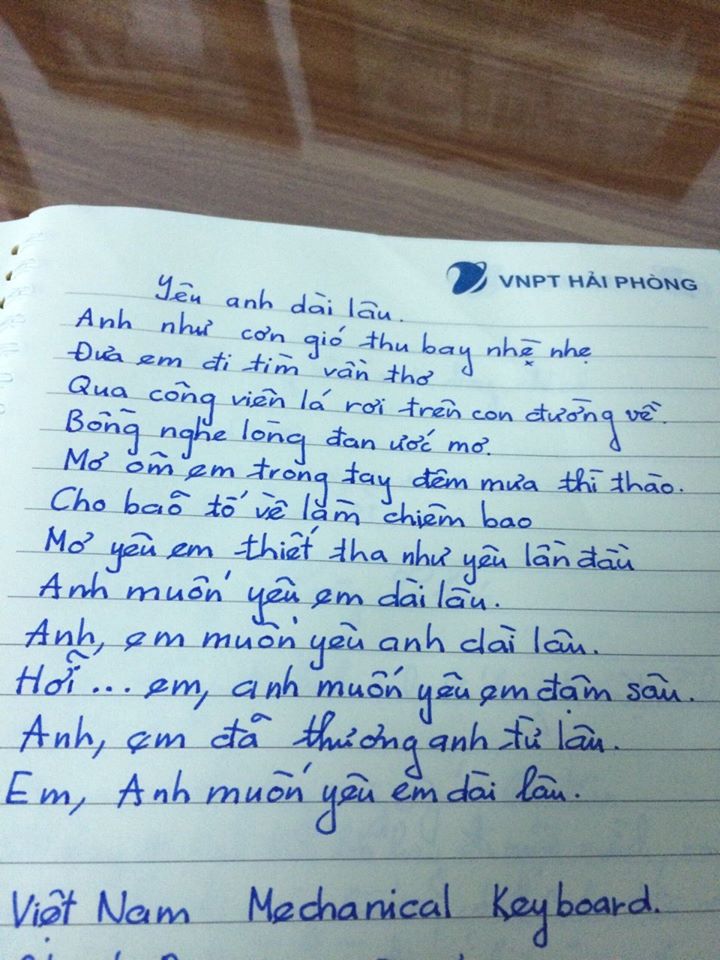 VNPT HẢI PHÒNG
Yêu anh dài lâu.
Anh như cơn gió thu bay nhẹ nhẹ
Đưa em đi tìm vần thơ
Qua công viên lá rơi trên con đường về.
Bỗng nghe lòng đan ước mơ.
Mơ ôm em trong tay đêm mưa thì thào.
Cho bão tố về làm chiêm bao
Mơ yêu em thiết tha như yêu lần đầu
Anh muốn yêu em dài lâu.
Anh, em muốn yêu anh dài lâu.
Hỡi... em, anh muốn yêu em đậm sâu.
Anh, em đã thương anh từ lâu.
Em, Anh muốn yêu em dài lâu.
Việt Nam Mechanical Keyboard.